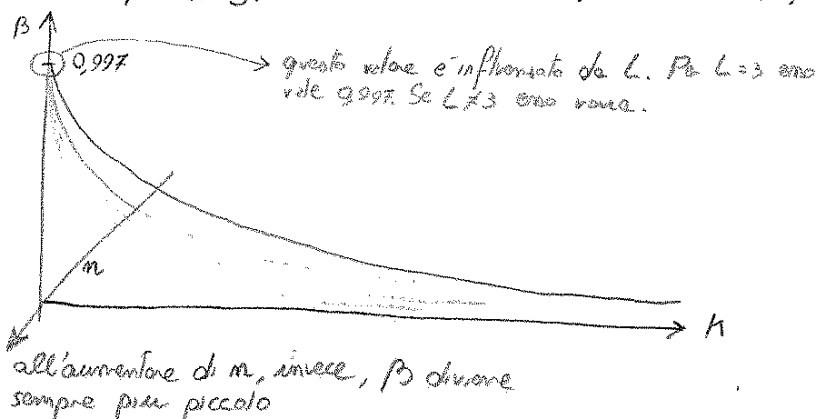 β
0,997
questo valore è influenzato da L. Per L=3 esso
vale 0,997. Se L≠3 esso varia.
n
K
all'aumentare di n, invece, β diviene
sempre più piccolo